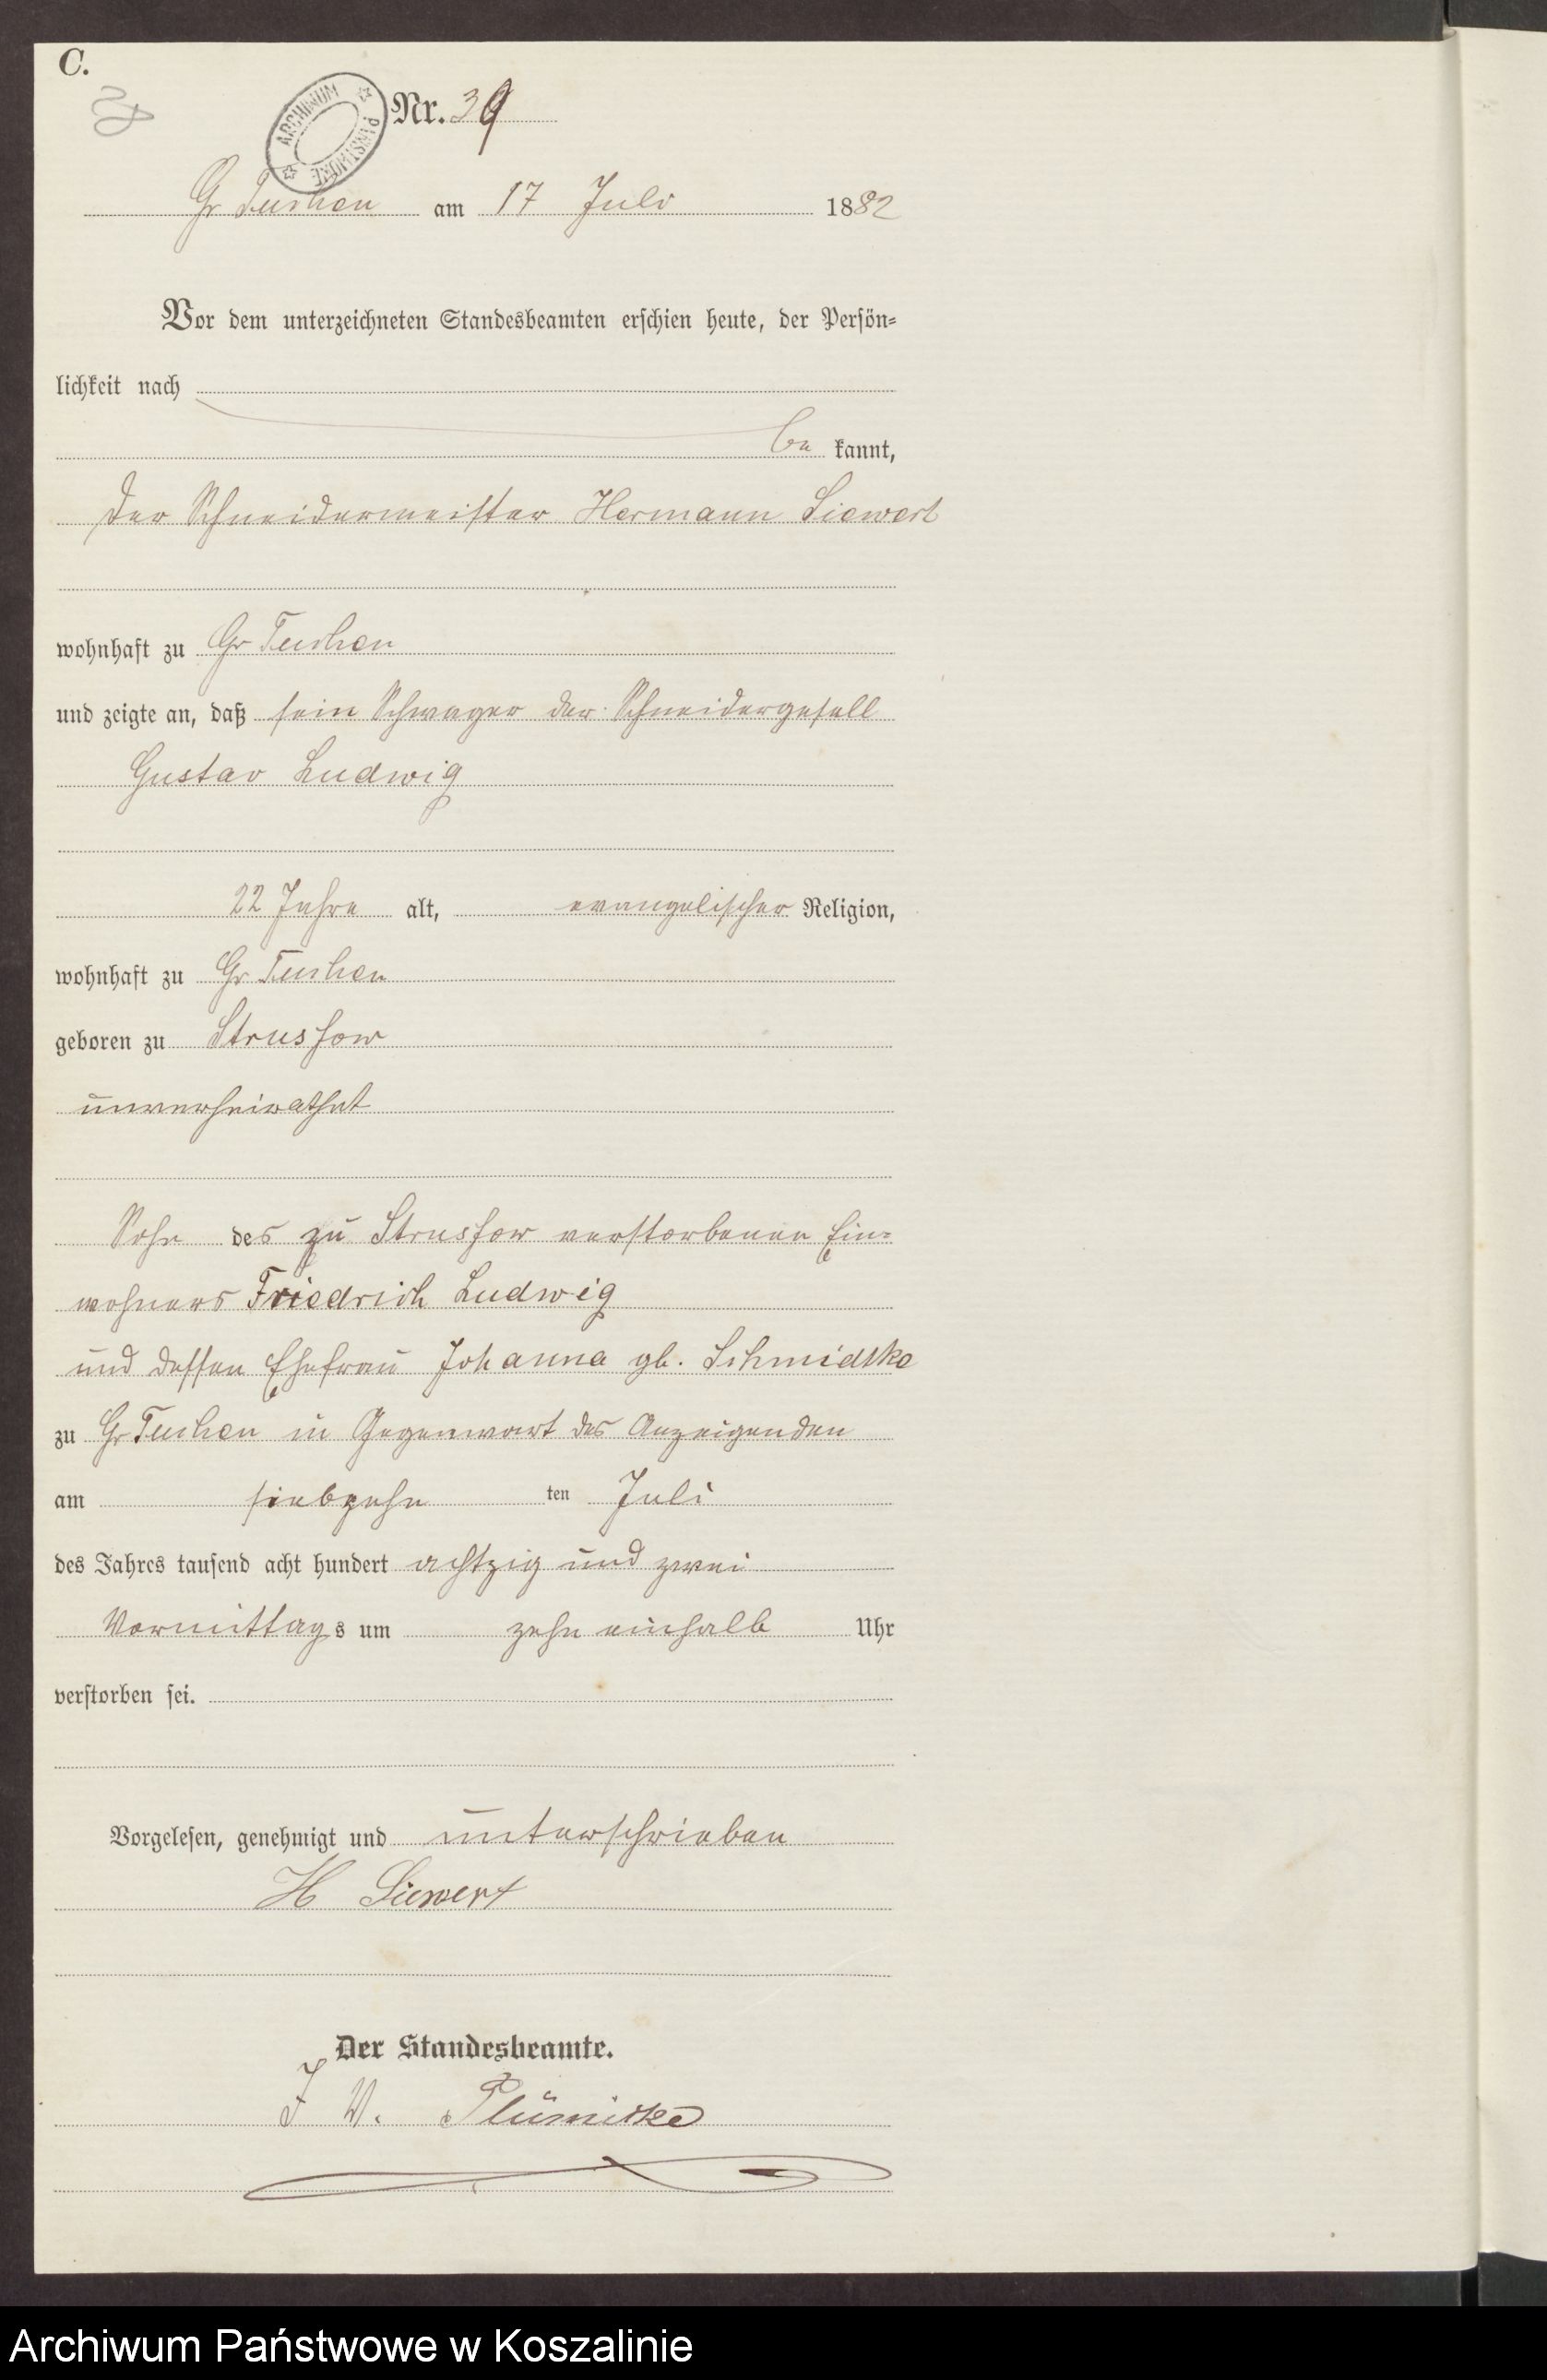 C.
ARCHIWUM PAŃSTWOWE
Nr. 39
Gr Tuchen am 17 Juli 1882
Vor dem unterzeichneten Standesbeamten erschien heute, der Persön-
lichkeit nach
be kannt,
der Schneidermeister Hermann Siewert
wohnhaft zu Gr Tuchen
und zeigte an, daß sein Schwager der Schneidergesell
Gustav Ludwig
22 Jahre alt, evangelischer Religion,
wohnhaft zu Gr Tuchen
geboren zu Strussow
unverheirathet
Sohn des zu Strussow verstorbenen Ein-
wohners Friedrich Ludwig
und dessen Ehefrau Johanna gb. Schmidtke
zu Gr Tuchen in Gegenwart des Anzeigenden
am siebzehn ten Juli
des Jahres tausend acht hundert achtzig und zwei
Vormittags um zehn einhalb Uhr
verstorben sei.
Vorgelesen, genehmigt und unterschrieben
H Siewert
Der Standesbeamte.
J V. Plümicke
Archiwum Państwowe w Koszalinie